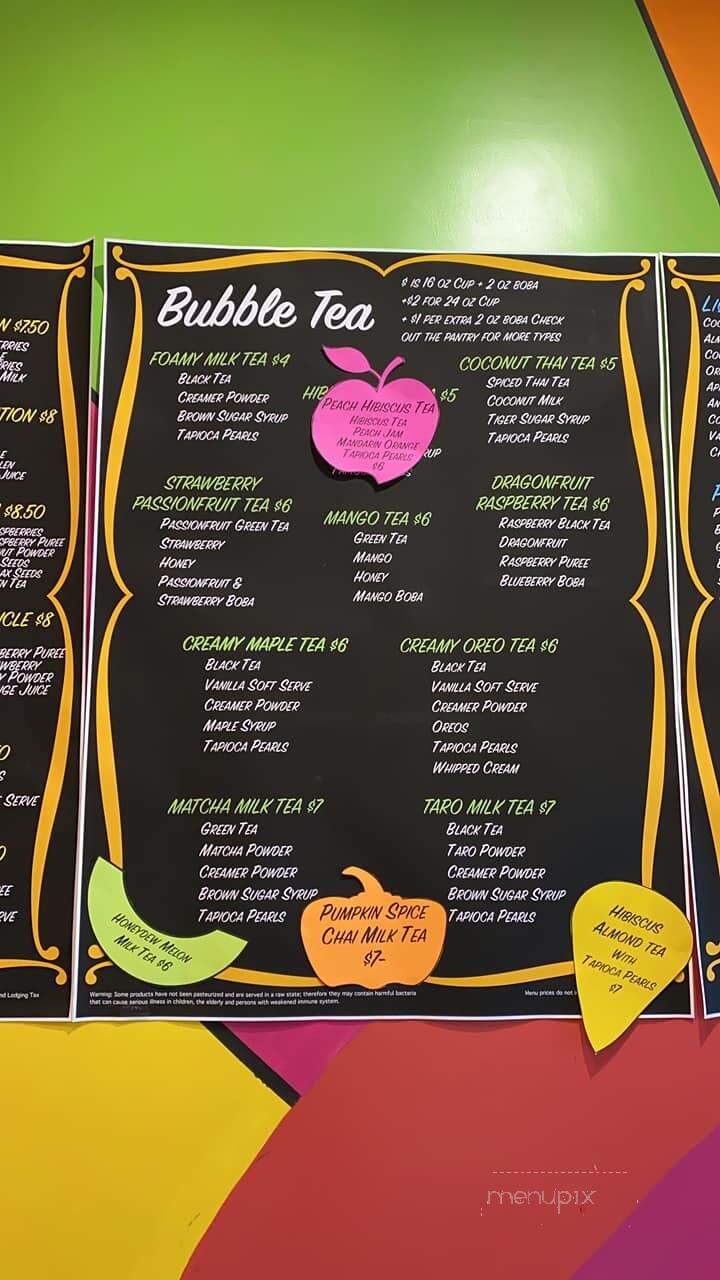 Bubble Tea
$ is 16 oz Cup + 2 oz boba
+$2 for 24 oz Cup
+ $1 per extra 2 oz boba Check
out the pantry for more types
Foamy Milk Tea $4
Black Tea
Creamer Powder
Brown Sugar Syrup
Tapioca Pearls
$5
Peach Hibiscus Tea
Hibiscus Tea
Peach Jam
Mandarin Orange
Tapioca Pearls
$6
Coconut Thai Tea $5
Spiced Thai Tea
Coconut Milk
Tiger Sugar Syrup
Tapioca Pearls
Strawberry
Passionfruit Tea $6
Passionfruit Green Tea
Strawberry
Honey
Passionfruit &
Strawberry Boba
Mango Tea $6
Green Tea
Mango
Honey
Mango Boba
Dragonfruit
Raspberry Tea $6
Raspberry Black Tea
Dragonfruit
Raspberry Puree
Blueberry Boba
Creamy Maple Tea $6
Black Tea
Vanilla Soft Serve
Creamer Powder
Maple Syrup
Tapioca Pearls
Creamy Oreo Tea $6
Black Tea
Vanilla Soft Serve
Creamer Powder
Oreos
Tapioca Pearls
Whipped Cream
Matcha Milk Tea $7
Green Tea
Matcha Powder
Creamer Powder
Brown Sugar Syrup
Tapioca Pearls
Taro Milk Tea $7
Black Tea
Taro Powder
Creamer Powder
Brown Sugar Syrup
Tapioca Pearls
Honeydew Melon
Milk Tea $6
Pumpkin Spice
Chai Milk Tea
$7-
Hibiscus
Almond Tea
with
Tapioca Pearls
$7
Warning: Some products have not been pasteurized and are served in a raw state; therefore they may contain harmful bacteria
that can cause serious illness in children, the elderly and persons with weakened immune system.
Menu prices do not
$7.50
Milk
$8
Juice
$8.50
Powder
Seeds
Tea
$8
Puree
Powder
Juice
Serve
nd Lodging Tax
menupix